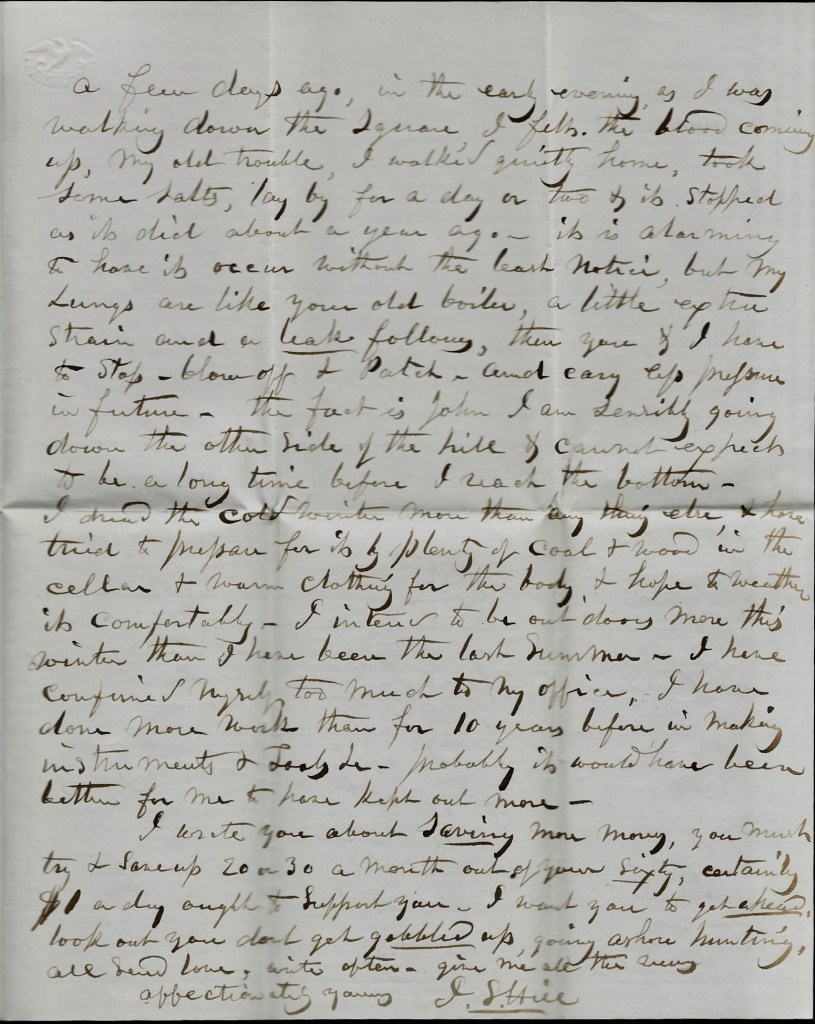 a few days ago, in the early evening, as I was
walking down the Square, I felt the blood coming
up, my old trouble, I walked quietly home, took
some salts, lay by for a day or two & it stopped
as it did about a year ago - it is alarming
to have it occur without the least notice, but my
Lungs are like your old boiler, a little extra
strain and a leak follows, then you & I have
to stop - blow off & Patch - and cary less pressure
in future - the fact is John I am sensibly going
down the other side of the hill & cannot expect
to be a long time before I reach the bottom -
I dread the cold winter more than any thing else, & have
tried to prepare for it by plenty of coal & wood in the
cellar & warm clothing for the body, & hope to weather
it comfortably - I intend to be out doors more this
winter than I have been the last Summer - I have
confined myself too much to my office, - I have
done more work than for 10 years before in making
instruments & Tools &c - probably it would have been
better for me to have kept out more -
I write you about saving more money, you must
try & save up 20 or 30 a month out of your sixty, certainly
$1 a day ought to support you - I want you to get ahead,
look out you dont get gobbled up, going ashore hunting,
all send love, write often - give me all the news
affectionately yours J. S. Hill